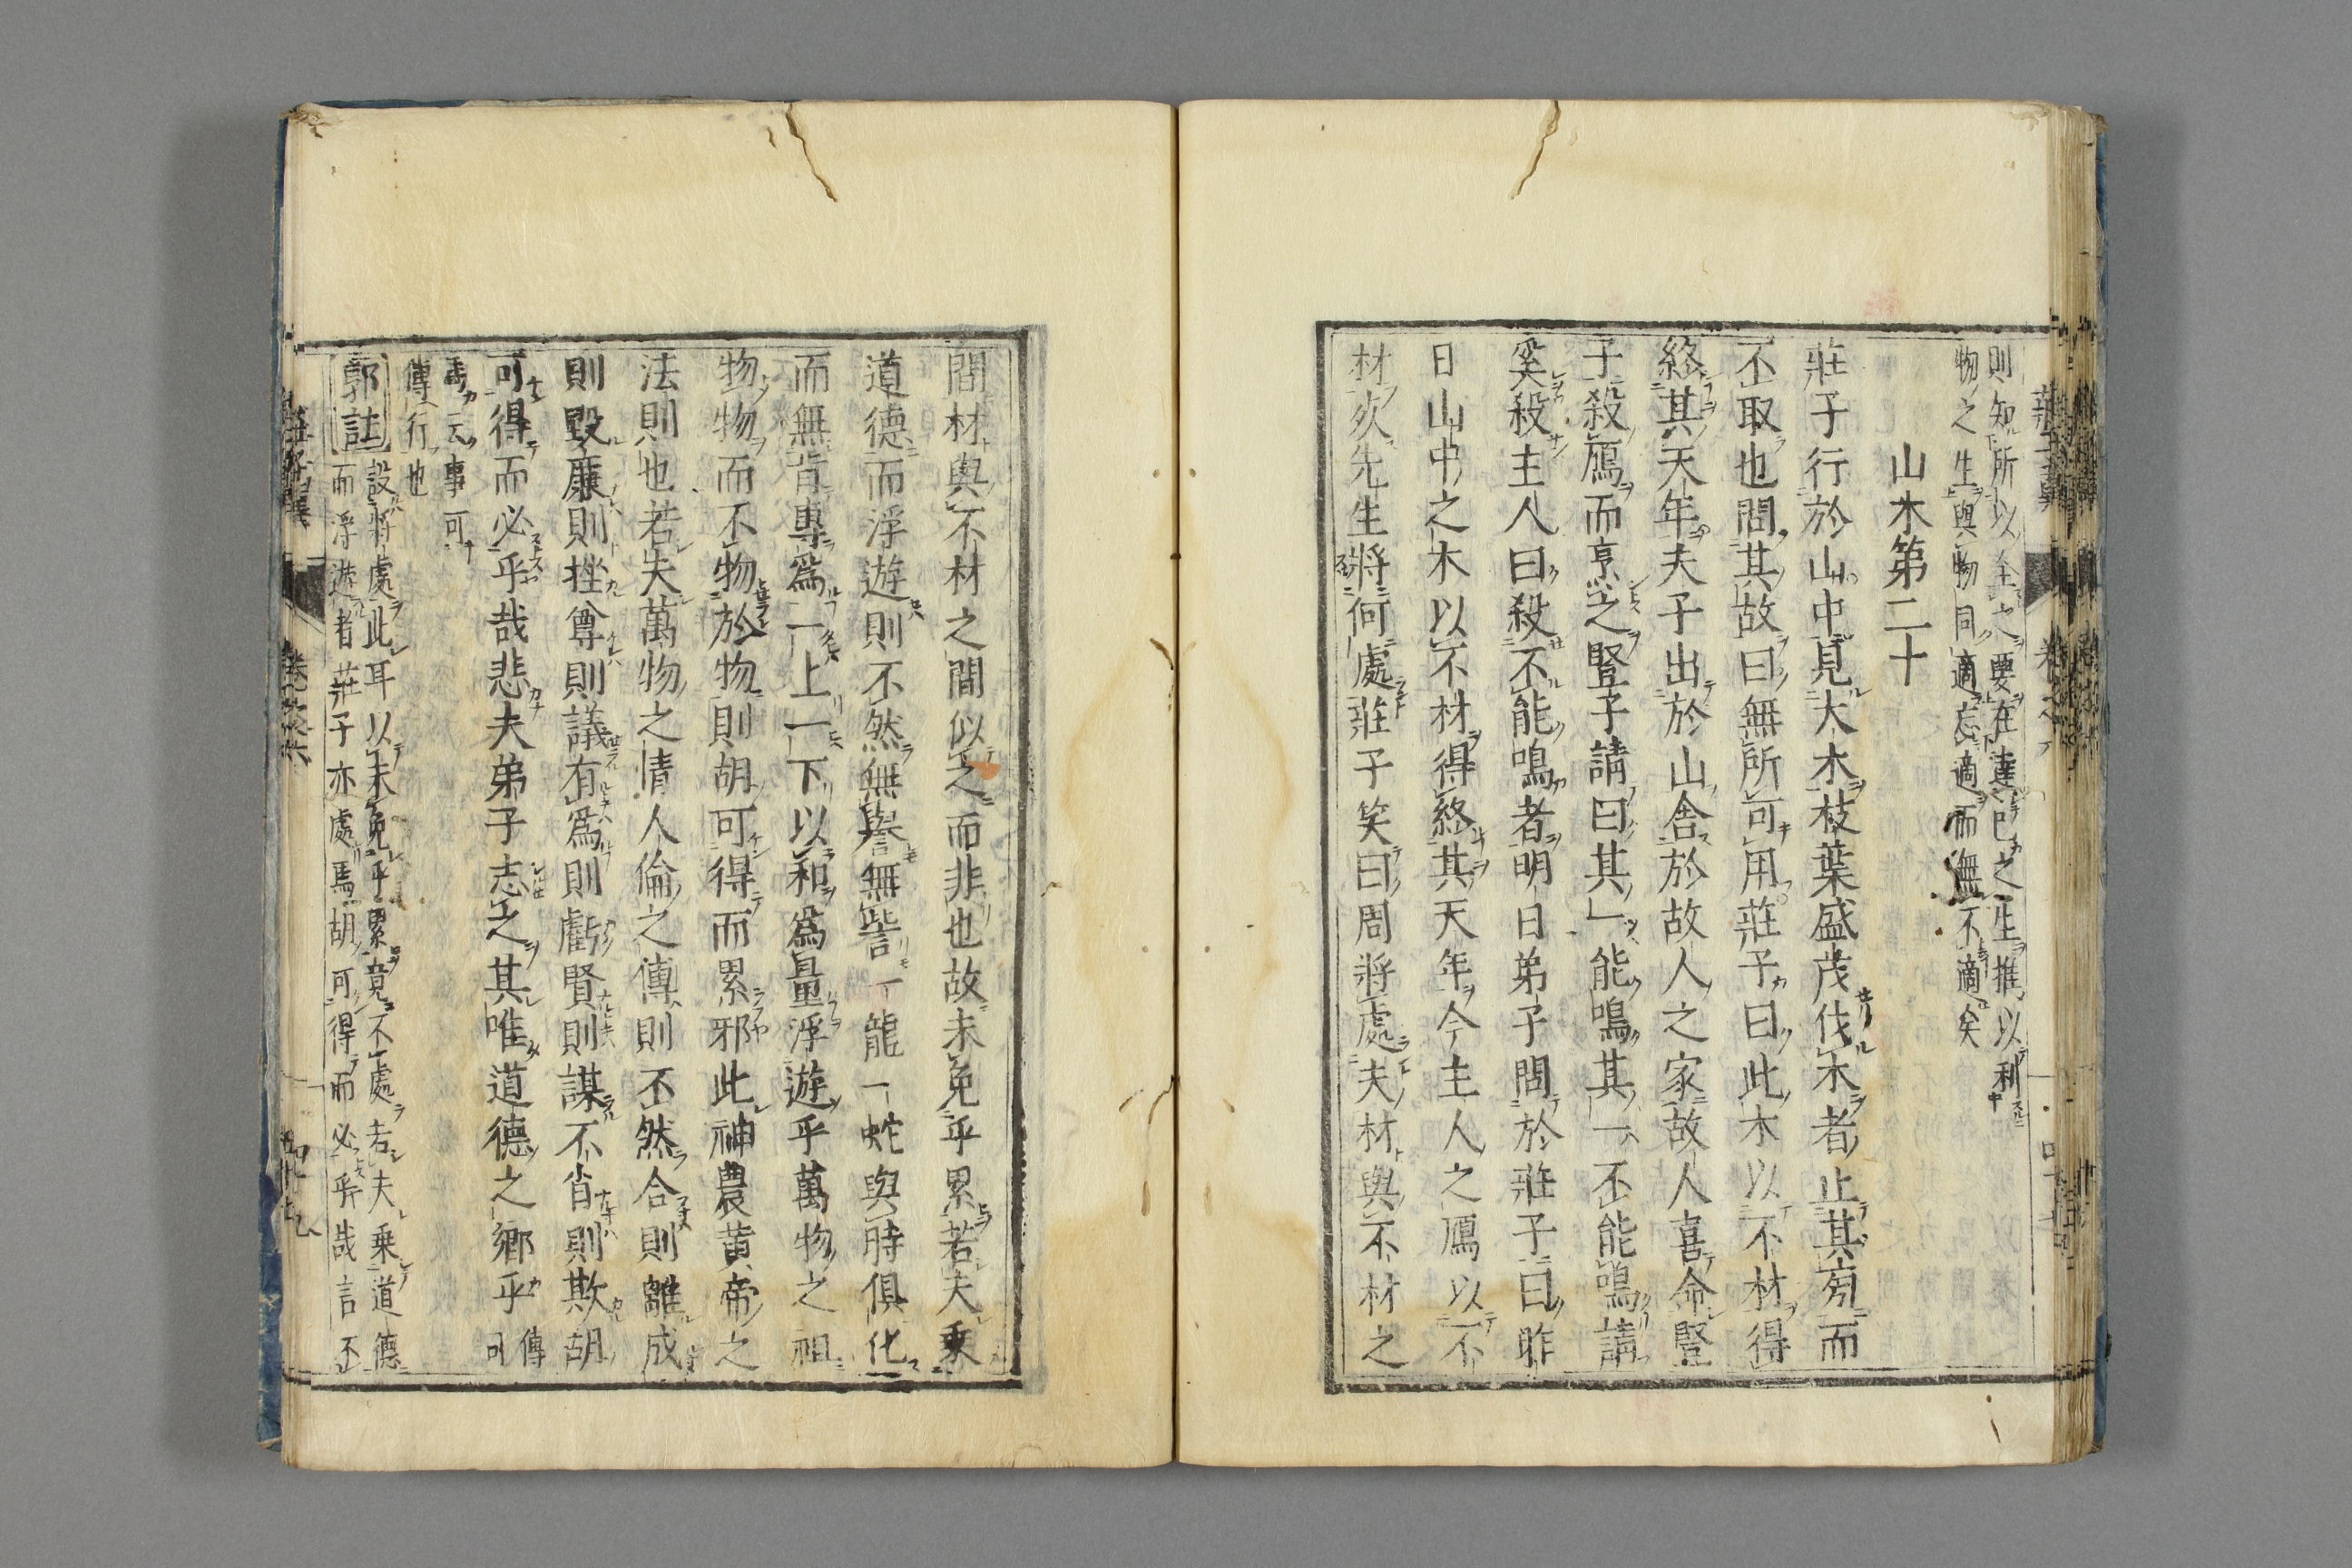 則知所以全之要在達已之生推以利
物之生與物同適忘適而無不適矣
山木第二十
莊子行於山中見大木枝葉盛茂伐木者止其旁而
不取也問其故曰無所可用莊子曰此木以不材得
終其天年夫子出於山舍於故人之家故人喜命豎
子殺鴈而烹之豎子請曰其一能鳴其一不能鳴請
奚殺主人曰殺不能鳴者明日弟子問於莊子曰昨
日山中之木以不材得終其天年今主人之鴈以不
材死先生將何處莊子笑曰周將處夫材與不材之
間材與不材之間似之而非也故未免乎累若夫乗
道德而浮遊則不然無譽無訾一龍一蛇與時俱化
而無肯專爲一上一下以和爲量浮遊乎萬物之祖
物物而不物於物則胡可得而累邪此神農黃帝之
法則也若夫萬物之情人倫之傳則不然合則離成
則毀廉則挫尊則議有爲則虧賢則謀不肖則欺胡
可得而必乎哉悲夫弟子志之其唯道德之鄉乎
傳
事可
傳行也
郭註
設將處此耳以未免乎累竟不處若夫乗道德
而浮遊者莊子亦處焉胡可得而必乎哉言不